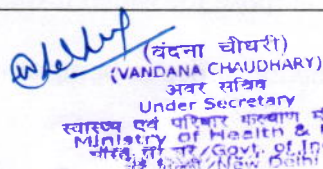 (वंदना चौधरी)
(VANDANA CHAUDHARY)
अवर सचिव
Under Secretary
स्वास्थ्य एवं परिवार कल्याण
Ministry of Health &
/Govt. of
/New Delhi